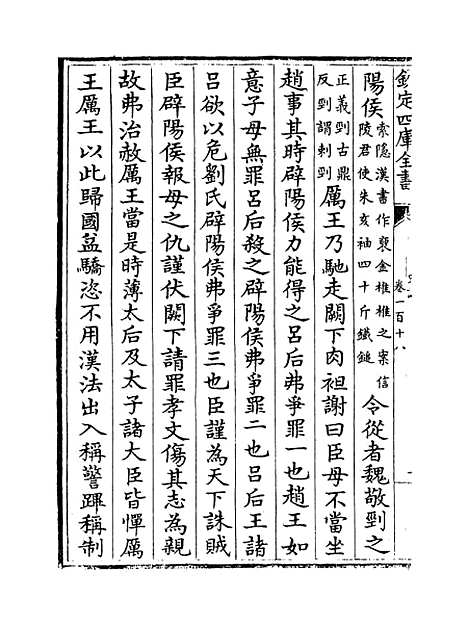 欽定四庫全書
卷一百十八
陽侯索隱漢書作裒金椎椎之案信陵君使朱亥袖四十斤鐵鎚令從者魏敬剄之
正義剄古鼎反剄謂刺到厲王乃馳走闕下肉袒謝曰臣母不當坐
趙事其時辟陽侯力能得之呂后弗爭罪一也趙王如
意子母無罪呂后殺之辟陽侯弗爭罪二也呂后王諸
呂欲以危劉氏辟陽侯弗爭罪三也臣謹為天下誅賊
臣辟陽侯報母之仇謹伏闕下請罪孝文傷其志為親
故弗治赦厲王當是時薄太后及太子諸大臣皆憚厲
王厲王以此歸國益驕恣不用漢法出入稱警蹕稱制